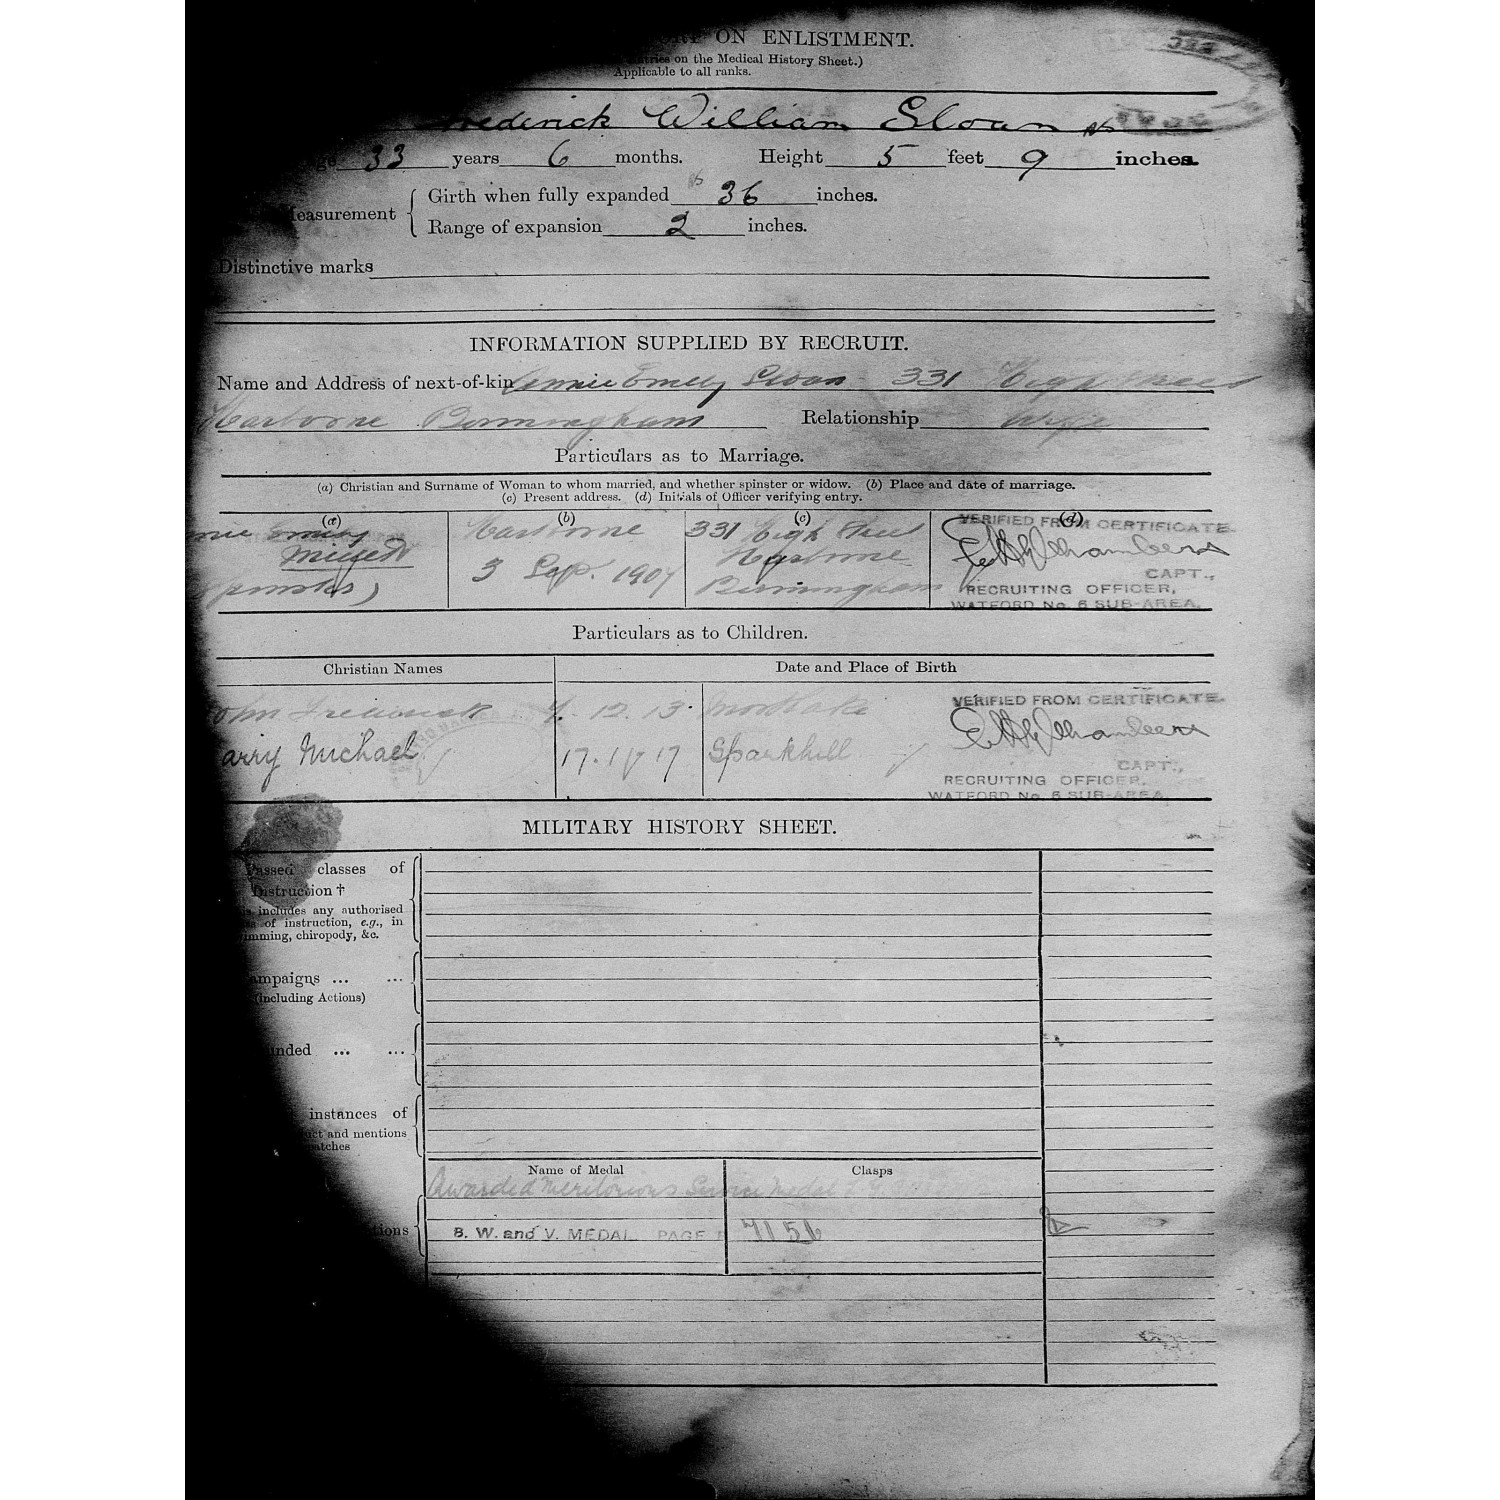 ON ENLISTMENT.
on the Medical History Sheet.)
Applicable to all ranks.
rederick William Sloan
33 years 6 months. Height 5 feet 9 inches.
easurement Girth when fully expanded 36 inches.
Range of expansion 2 inches.
Distinctive marks
INFORMATION SUPPLIED BY RECRUIT.
Name and Address of next-of-kin Annie Emily Sloan 331 High Street
Harborne Birmingham Relationship Wife
Particulars as to Marriage.
(a) Christian and Surname of Woman to whom married, and whether spinster or widow. (b) Place and date of marriage.
(c) Present address. (d) Initials of Officer verifying entry.
(a) (b) (c) (d)
nie Emily Harborne 331 High Street VERIFIED FROM CERTIFICATE.
3 Sep. 190 Harborne
Birmingham CAPT.,
RECRUITING OFFICER,
WATFORD No. 6 SUB-AREA.
Particulars as to Children.
Christian Names Date and Place of Birth
ohn Frederick 12.13. Mortlake VERIFIED FROM CERTIFICATE.
arry Michael 17. 17 Sparkhill
CAPT.,
RECRUITING OFFICER,
WATFORD No. 6 SUB-AREA.
MILITARY HISTORY SHEET.
Passed classes of
Instruction †
includes any authorised
of instruction, e.g., in
mming, chiropody, &c.
ampaigns ... ...
(including Actions)
nded ... ...
instances of
ct and mentions
atches
Name of Medal Clasps
Awarded Meritorious Service Medal
tions B. W. and V. MEDAL PAGE 7156